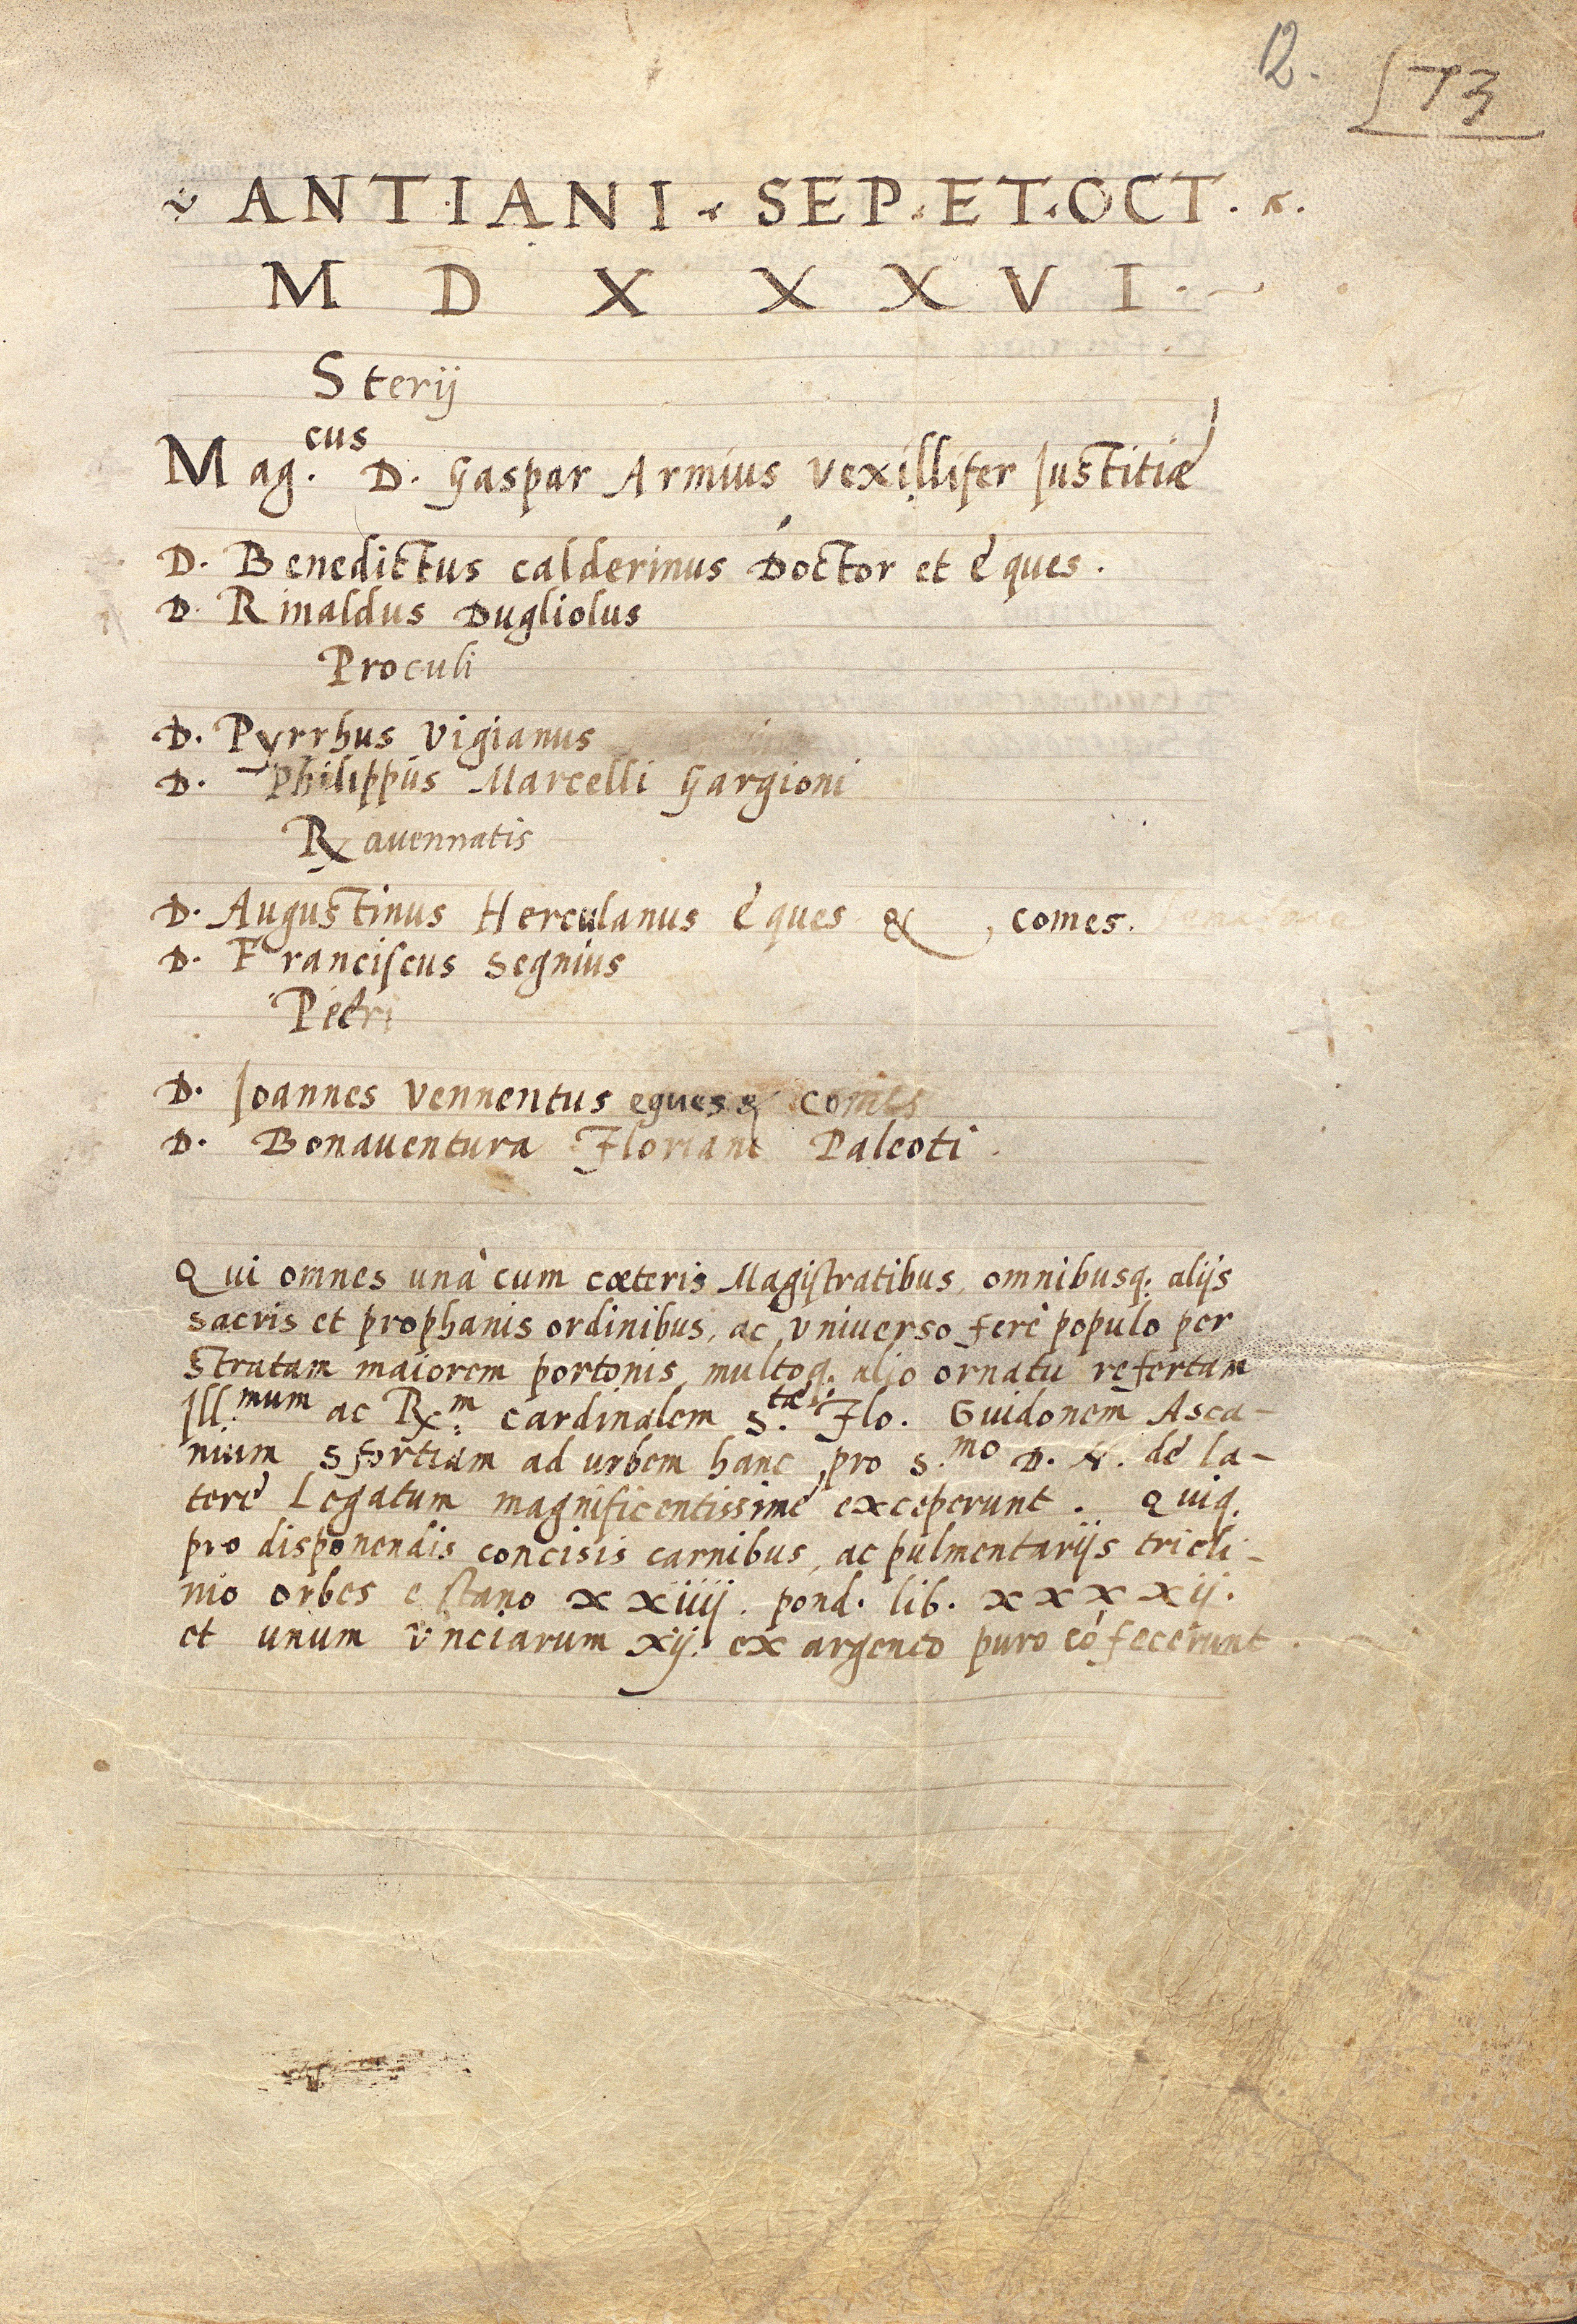 12. 73
ANTIANI · SEP · ET · OCT ·
M D X X X V I ·
Sterij
Mag.cus D. Gaspar Armius Vexillifer Justitiæ
D. Benedictus calderinus Doctor et éques.
D. Rinaldus Dugliolus
Proculi
D. Pyrrhus Vigianus
D. Philippus Marcelli Gargioni
Rauennatis
D. Augustinus Herculanus éques & comes.
D. Franciscus Segnius
Petri
D. Joannes Vennentus eques & comes
D. Bonauentura Floriani Paleoti.
Qui omnes unà cum cæteris Magistratibus, omnibusq. alijs
sacris et prophanis ordinibus, ac Vniuerso ferè populo per
Stratam maiorem portonis, multoq. alio ornatu refertam
Ill.mum ac R.m cardinalem S.tæ Flo. Guidonem Asca-
nium Sfortiam ad urbem hanc pro S.mo D. N. dè la-
terè Legatum magnificentissimè exceperunt. Quiq.
pro disponendis concisis carnibus, ac pulmentarijs tricli-
nio orbes e stano XXiiij. pond. lib. XXXXij.
et unum Vnciarum Xij. ex argento puro cófecerunt.